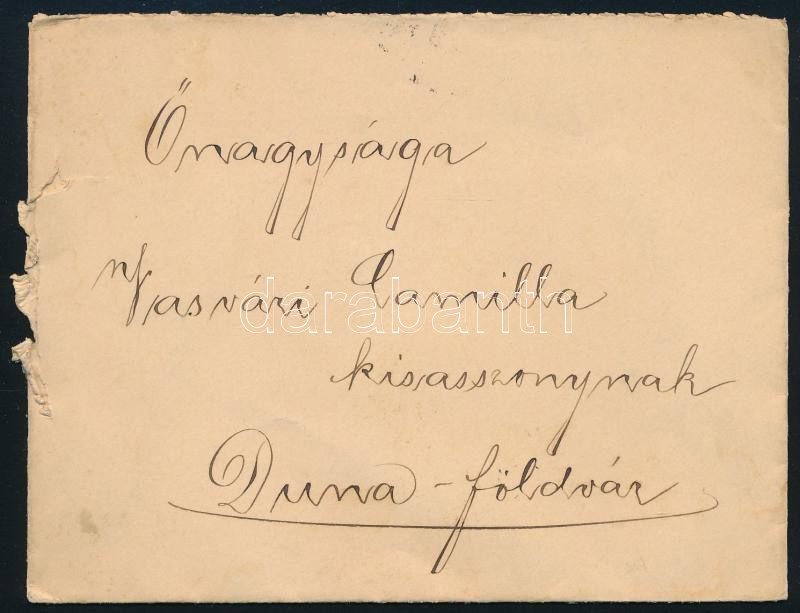 Őnagysága
Vasvári Camilla
darabanth
kisasszonynak
Duna-földvár